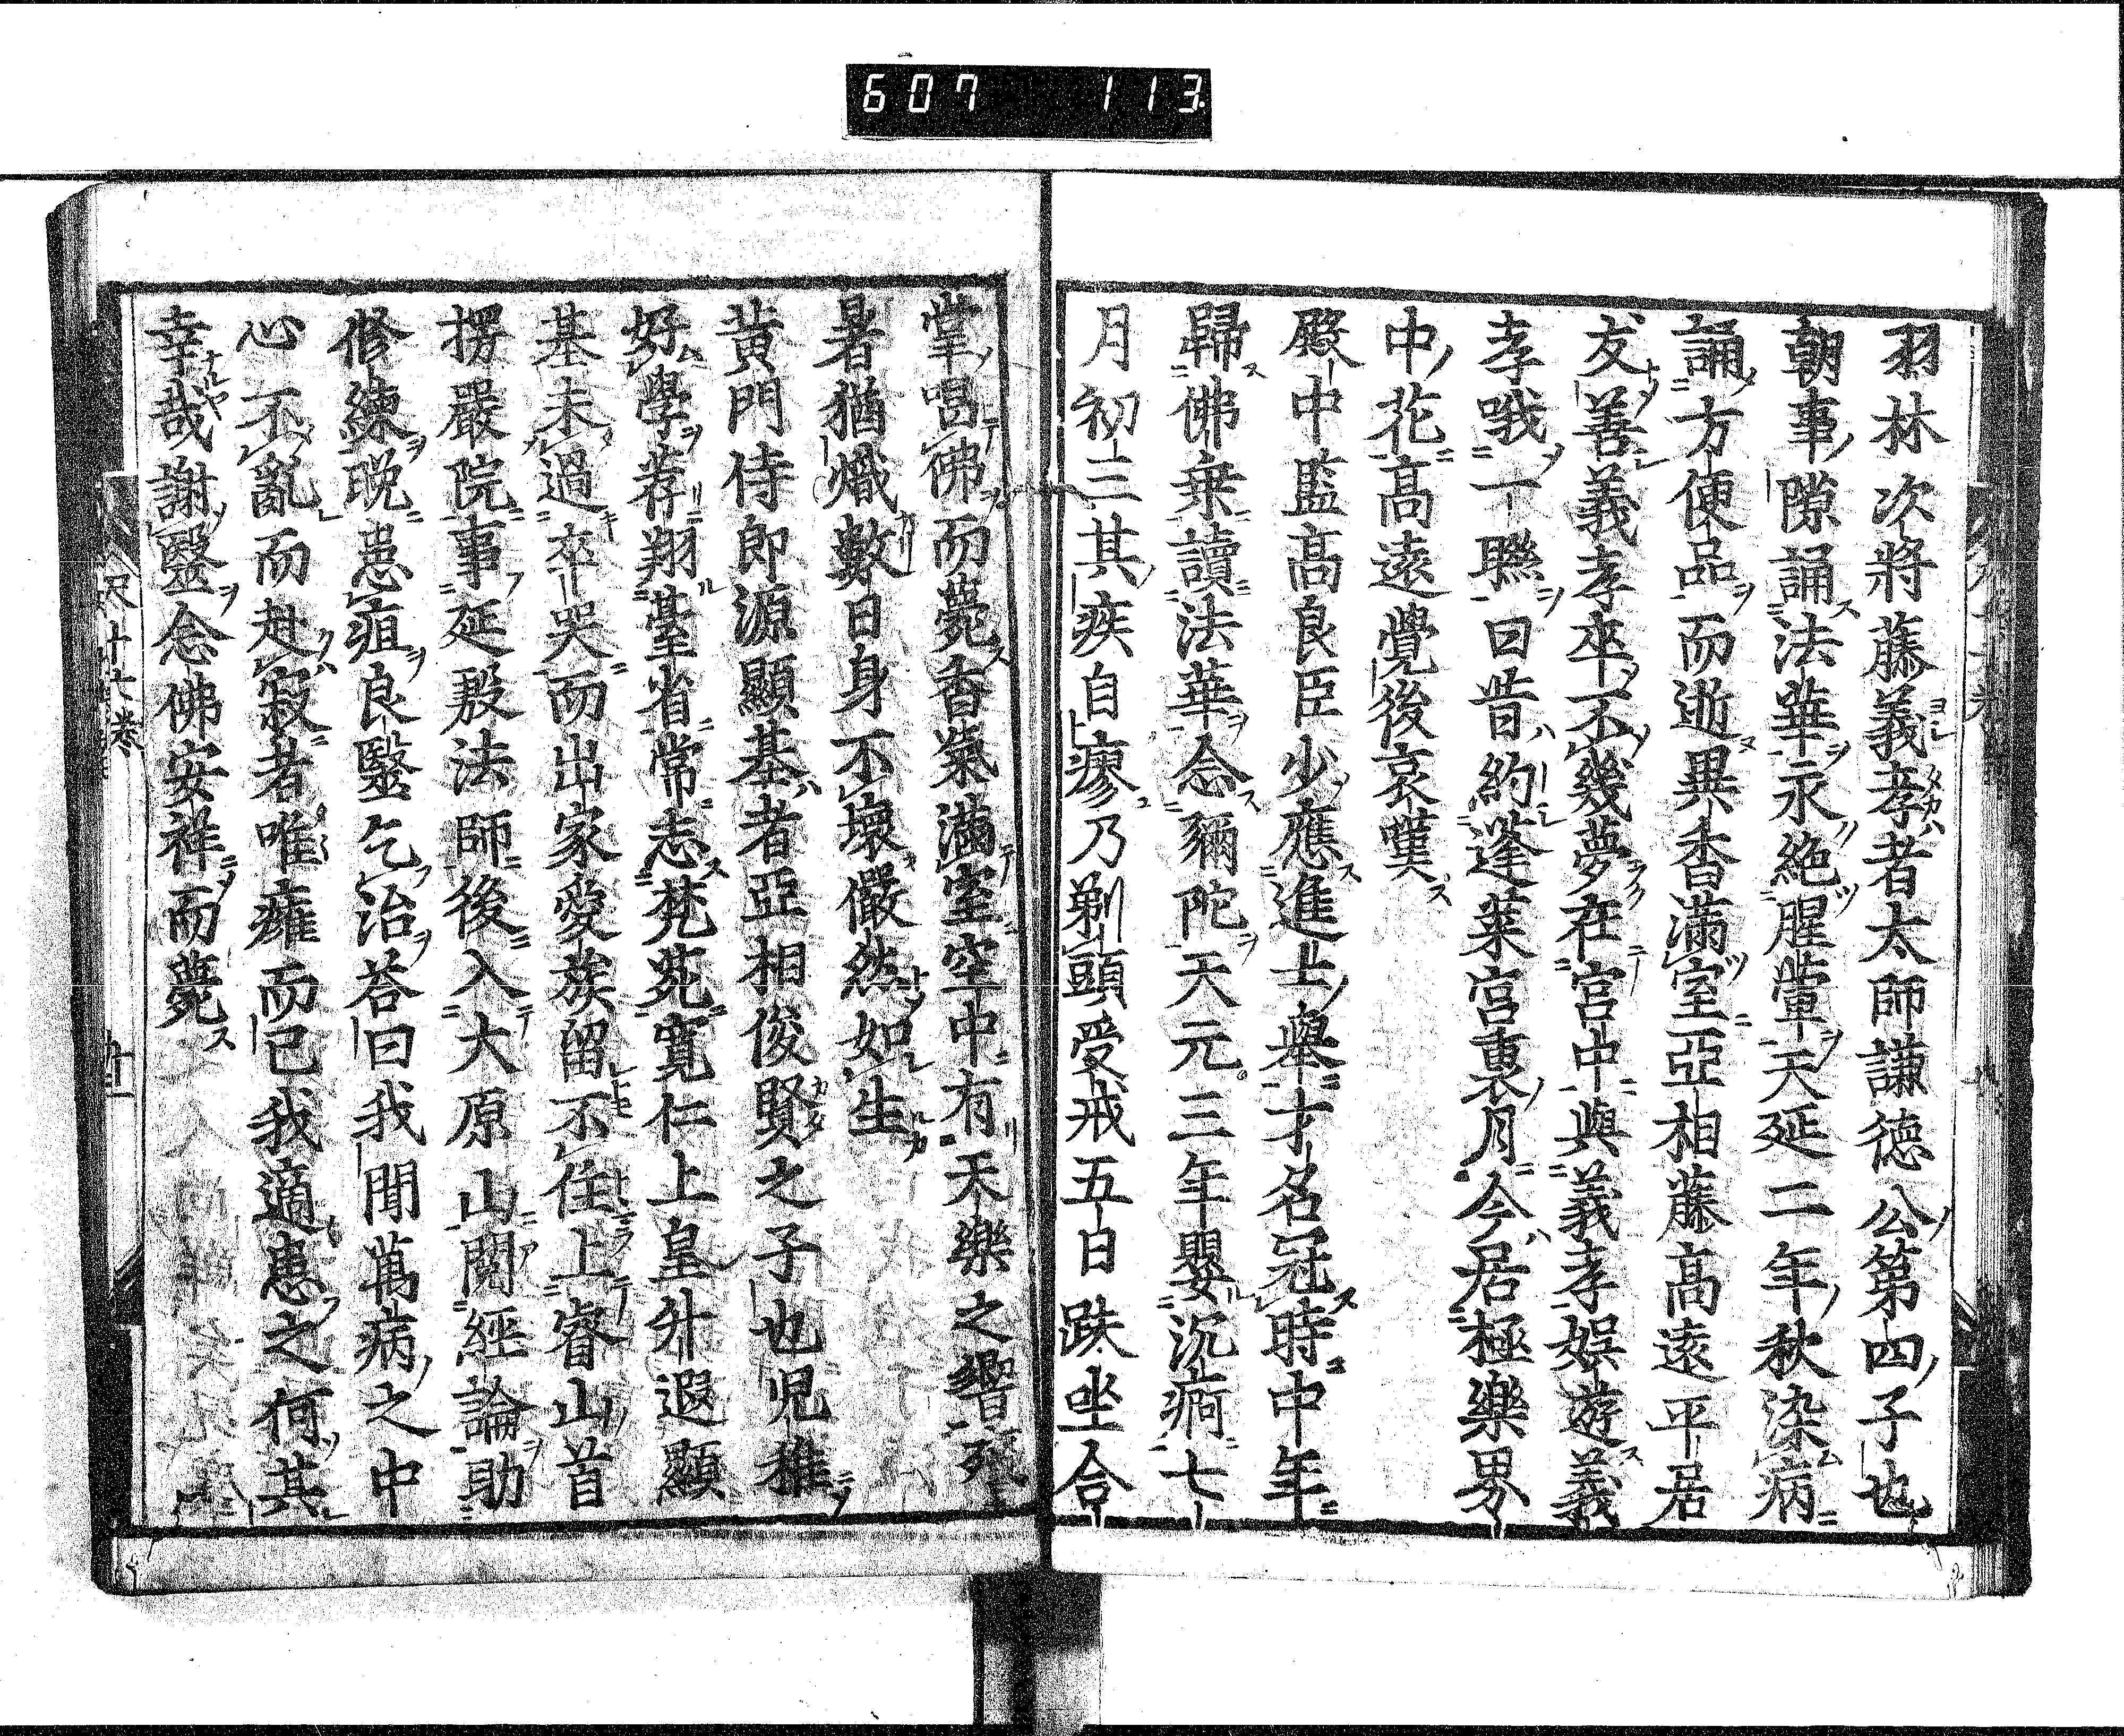 607 113.
羽林次將藤義孝者太師謙德公第四子也
朝事隙誦法華永絶腥葷天延二年秋染病
誦方便品而逝異香滿室亞相藤高遠平居
友善義孝卒不幾夢在宮中與義孝娯遊義
孝哦一聯曰昔約蓬萊宮裏月今居極樂界
中花高遠覺後哀嘆
殿中監高良臣少應進士舉才名冠時中年
歸佛乗讀法華念彌陀天元三年嬰沉痾七
月初三其疾自瘳乃剃頭受戒五日趺坐合
掌唱佛而薨香氣滿室空中有天樂之響死
暑猶熾數日身不壞儼然如生
黄門侍郎源顯基者亞相俊賢之子也児稚
好學荐翔臺省常志梵苑寛仁上皇升遐顯
基未過卒哭而出家愛族留不住上睿山首
楞嚴院事延殷法師後入大原山閲經論助
修練晩患疽良毉乞治荅曰我聞萬病之中
心不亂而赴寂者唯癰而已我適患之何其
幸哉謝毉念佛安祥而薨
尺十七巻